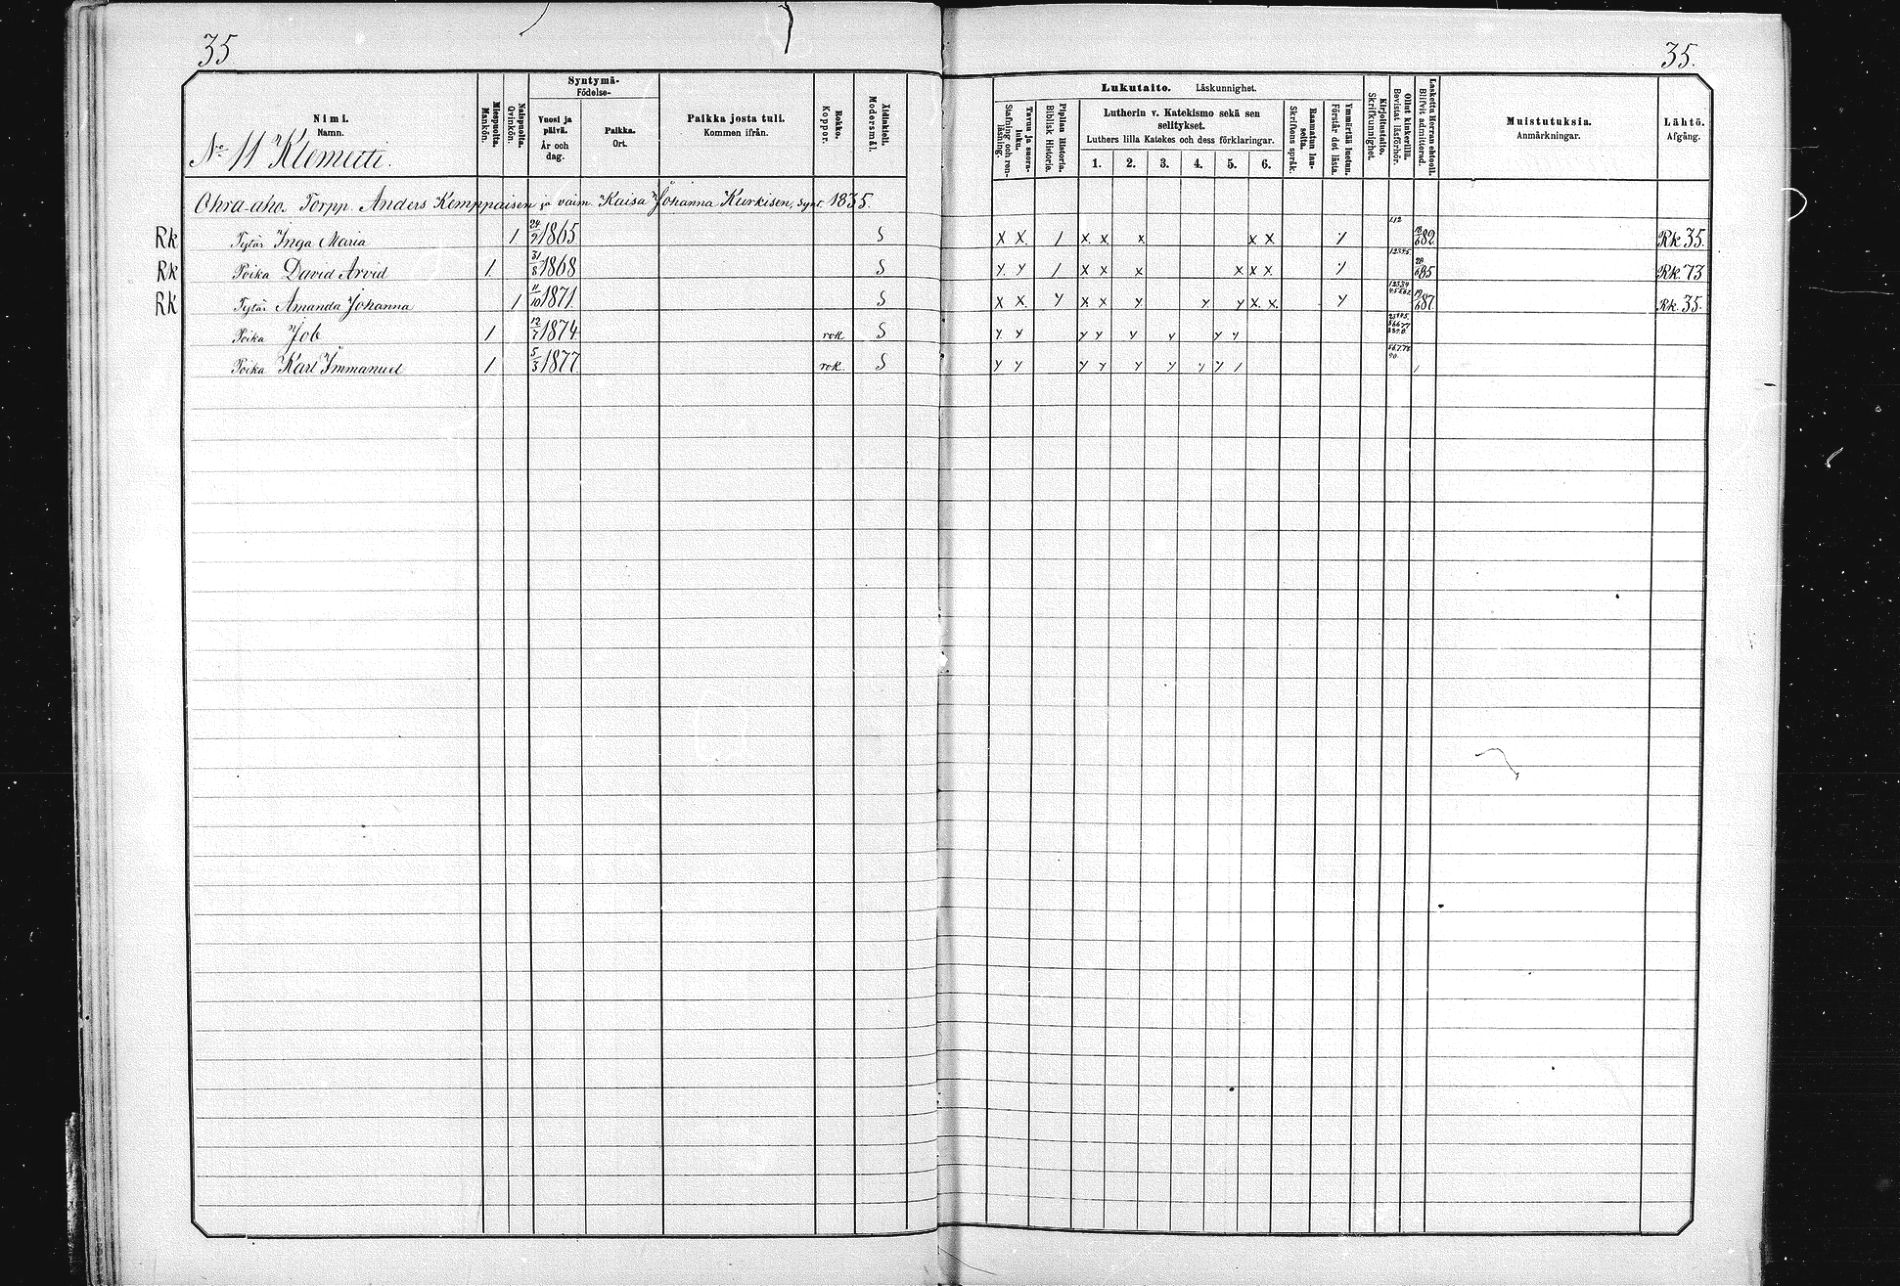 35
35.
Nimi.
Namn.
No 11 Klemetti.
Miespuolia.
Mankön.
Naispuolia.
Qvinkön.
Syntymä-
Födelse-
Vuosi ja päivä.
År och dag.
Paikka.
Ort.
Paikka josta tuli.
Kommen ifrån.
Rokko.
Koppor.
Äidinkieli.
Modersmål.
Lukutaito. Läskunnighet.
Tavuu ja suora-luku.
Stafning och ren-läsning.
Piplian Historia.
Biblisk Historie.
Lutherin v. Katekismo sekä sen selitykset.
Luthers lilla Katekes och dess förklaringar.
1. 2. 3. 4. 5. 6.
Raamatun lau-seita.
Skriftens språk.
Ymmärtää luetun.
Förstår det lästa.
Kirjoitustaito.
Skrifkunnighet.
Ollut kinkerillä.
Bevistat läsförhör.
Laskettu Herran ehtool.
Blifvit admitterad.
Muistutuksia.
Anmärkningar.
Lähtö.
Afgång.
Ohra-aho. Torpp. Anders Kemppaisen ja vaim. Kaisa Johanna Kurkisen, synt. 1835.
Rk Tytär Inga Maria 1 24/9 1865 S X X / X X X X X 82 Rk 35.
Rk Poika David Arvid 1 31/8 1868 S Y Y / X X X X X X 85 Rk 73
Rk Tytär Amanda Johanna 1 11/10 1871. S X X Y X X Y Y Y X X Y 19/6 87. Rk 35.
Poika Job 1 12/7 1874 rok S Y Y Y Y Y Y Y Y
Poika Karl Immanuel 1 5/3 1877 rok S Y Y Y Y Y Y Y Y /